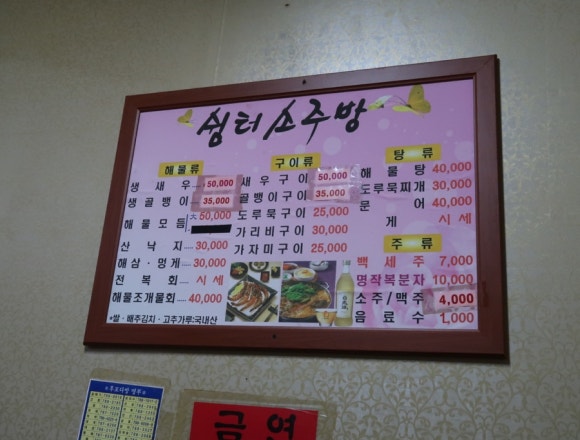 쉼터소주방
해물류
생새우.....50,000
생골뱅이.....35,000
해물모듬 大50,000
산낙지.....30,000
해삼·멍게.....30,000
전복회.....시세
해물조개물회.....40,000
*쌀·배추김치·고추가루:국내산
구이류
새우구이 50,000
골뱅이구이 35,000
도루묵구이 25,000
가리비구이 30,000
가자미구이 25,000
탕류
해물탕 40,000
도루묵찌개 30,000
문어 40,000
게 시세
주류
백세주 7,000
명작복분자 10,000
소주/맥주 4,000
음료수 1,000
금연